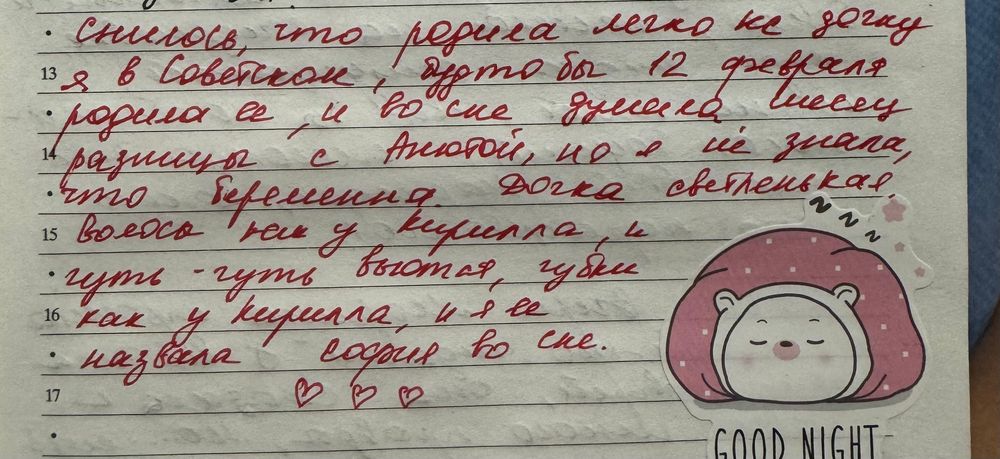 Снилось, что родила легко же дочку
13 я в Советском, будто бы 12 февраля
родила ее, и во сне думала месяц
14 разницы с Анютой, но я не знала,
что беременна. Дочка светленькая,
15 волосы как у Кирилла, и
чуть-чуть вьются, губки
16 как у Кирилла, и я ее
назвала София во сне.
17
GOOD NIGHT